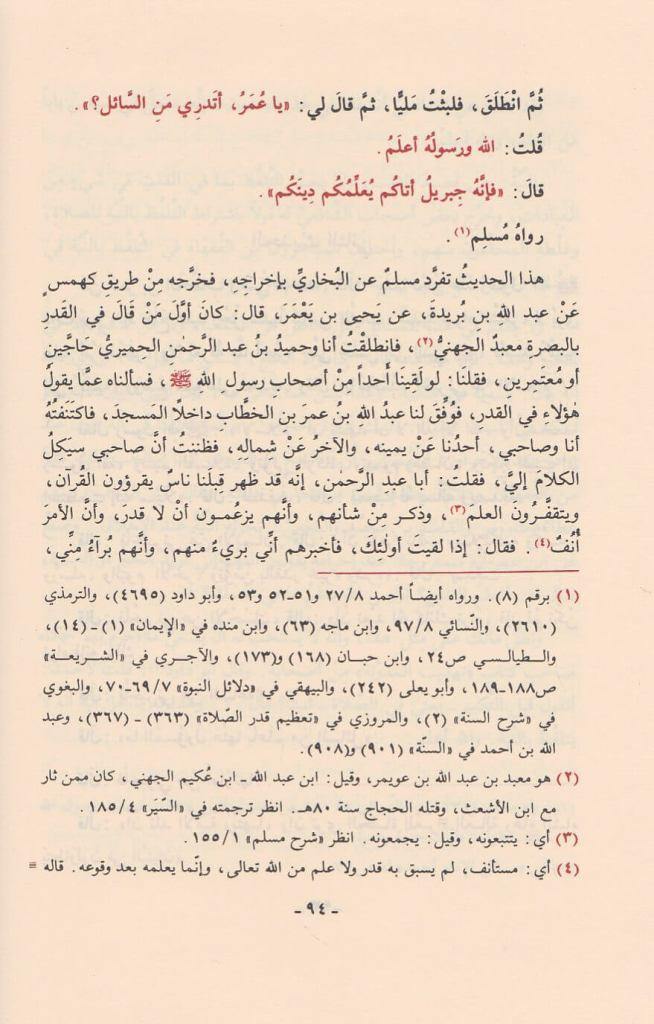 ثُمَّ انْطَلَقَ، فلبثْتُ مَليًّا، ثمَّ قالَ لي: «يا عُمَرُ، أتَدرِي مَنِ السَّائل؟».
قُلتُ: الله ورَسولُهُ أعلَمُ.
قالَ: «فإنَّهُ جِبريلُ أتاكُم يُعَلِّمُكُم دِينَكُم».
رواهُ مُسلِم(١).
هذا الحديثُ تفرَّد مسلمٌ عن البُخاريِّ بإخراجِهِ، فخرَّجه مِنْ طريقِ كهمسٍ
عَنْ عبد اللهِ بنِ بُريدةَ، عن يَحيى بن يَعْمَرَ، قال: كانَ أوَّلَ مَنْ قَالَ في القَدَرِ
بالبصرةِ معبدٌ الجهنيُّ(٢)، فانطلقْتُ أنا وحميدُ بنُ عبد الرَّحمٰنِ الحِميريُّ حَاجَّينِ
أو مُعتَمِرينِ، فقلنَا: لو لَقِينَا أحداً مِنْ أصحابِ رسولِ اللهِ ﷺ، فسألناه عمَّا يقولُ
هٰؤلاءِ في القدَرِ، فوُفِّقَ لنا عبدُ اللهِ بنُ عمرَ بنِ الخطَّابِ داخلًا المَسجدَ، فاكتَنَفتُهُ
أنا وصاحبي، أحدُنا عَنْ يمينه، والآخرُ عَنْ شِمالِهِ، فظننتُ أنَّ صاحبي سيَكِلُ
الكلامَ إليَّ، فقلتُ: أبا عبدِ الرَّحمٰنِ، إنَّه قد ظهر قِبلَنا ناسٌ يقرؤون القُرآن،
ويتقفَّرُونَ العلمَ(٣)، وذكر مِنْ شأنهم، وأنَّهم يزعُمون أنْ لا قدرَ، وأنَّ الأمرَ
أُنُفٌ(٤). فقال: إذا لقيتَ أولٰئِكَ، فأخبرهم أنِّي بريءٌ منهم، وأنَّهم بُرآءُ مِنِّي،
(١) برقم (٨). ورواه أيضاً أحمد ٢٧/٨ و٥١-٥٢ و٥٣، وأبو داود (٤٦٩٥)، والترمذي
(٢٦١٠)، والنَّسائي ٩٧/٨، وابن ماجه (٦٣)، وابن منده في «الإيمان» (١) - (١٤)،
والطيالسي ص٢٤، وابن حبان (١٦٨) و(١٧٣)، والآجري في «الشريعة»
ص١٨٨-١٨٩، وأبو يعلى (٢٤٢)، والبيهقي في «دلائل النبوة» ٦٩/٧-٧٠، والبغوي
في «شرح السنة» (٢)، والمروزي في «تعظيم قدر الصَّلاة» (٣٦٣) - (٣٦٧)، وعبد
الله بن أحمد في «السنَّة» (٩٠١) و(٩٠٨).
(٢) هو معبد بن عبد الله بن عويمر، وقيل: ابن عبد الله - ابن عُكيم الجهني، كان ممن ثار
مع ابن الأشعث، وقتله الحجاج سنة ٨٠هـ. انظر ترجمته في «السِّيَر» ١٨٥/٤.
(٣) أي: يتتبعونه، وقيل: يجمعونه. انظر «شرح مسلم» ١٥٥/١.
(٤) أي: مستأنف، لم يسبق به قدر ولا علم من الله تعالى، وإنَّما يعلمه بعد وقوعه. قاله =
- ٩٤ -